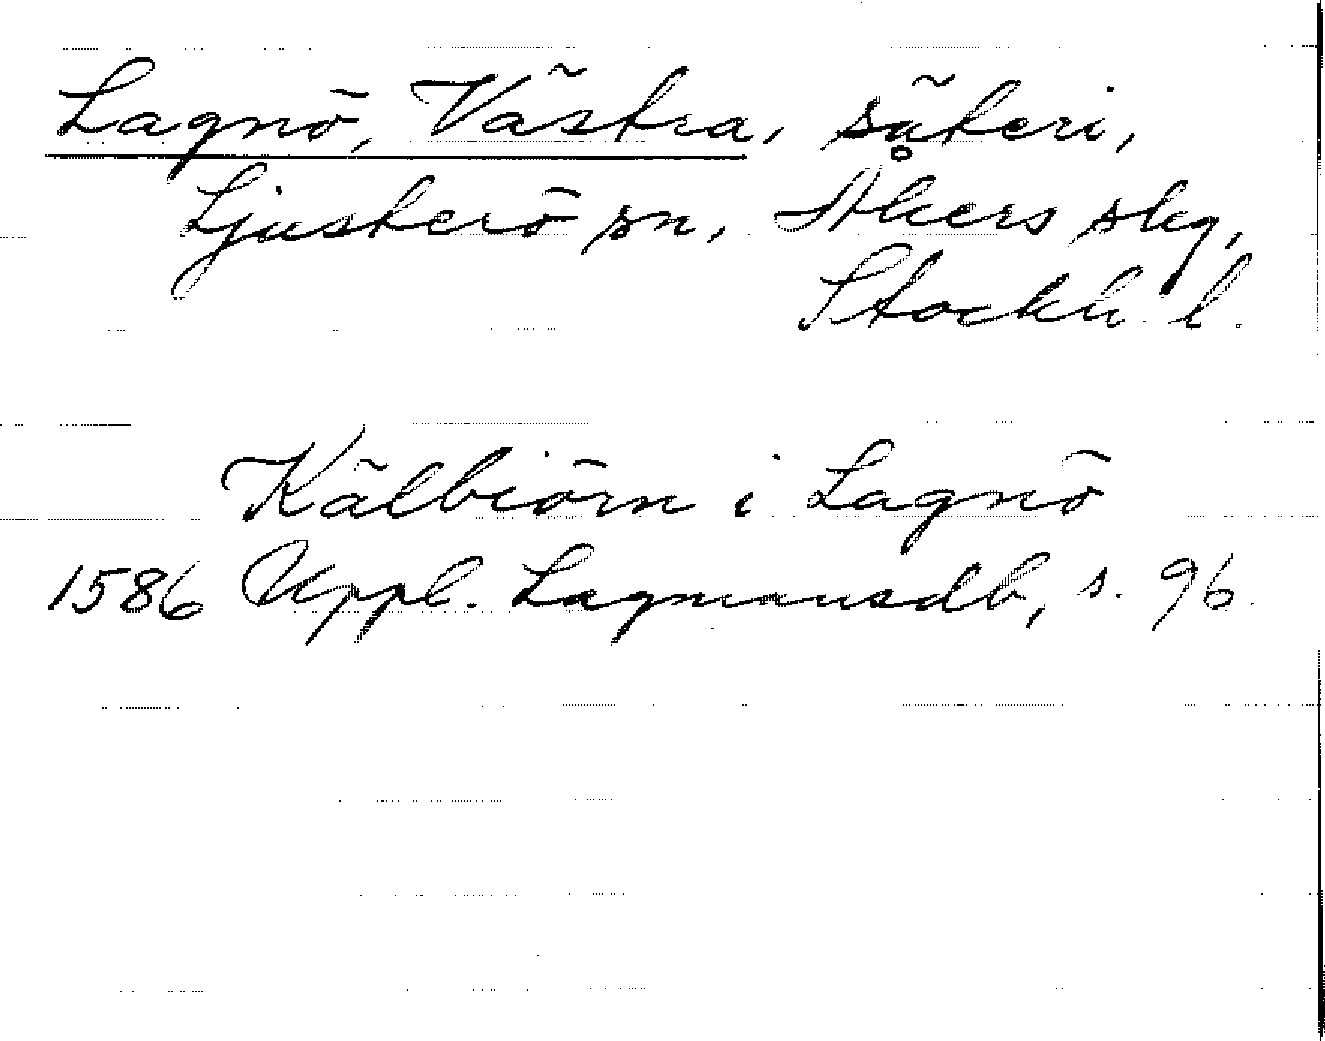 Lagnö, Västra, säteri,
Ljusterö sn, Åkers skg,
Stockh l.
Kälbiörn i Lagnö
1586 Uppl. Lagmansdb, s. 96.